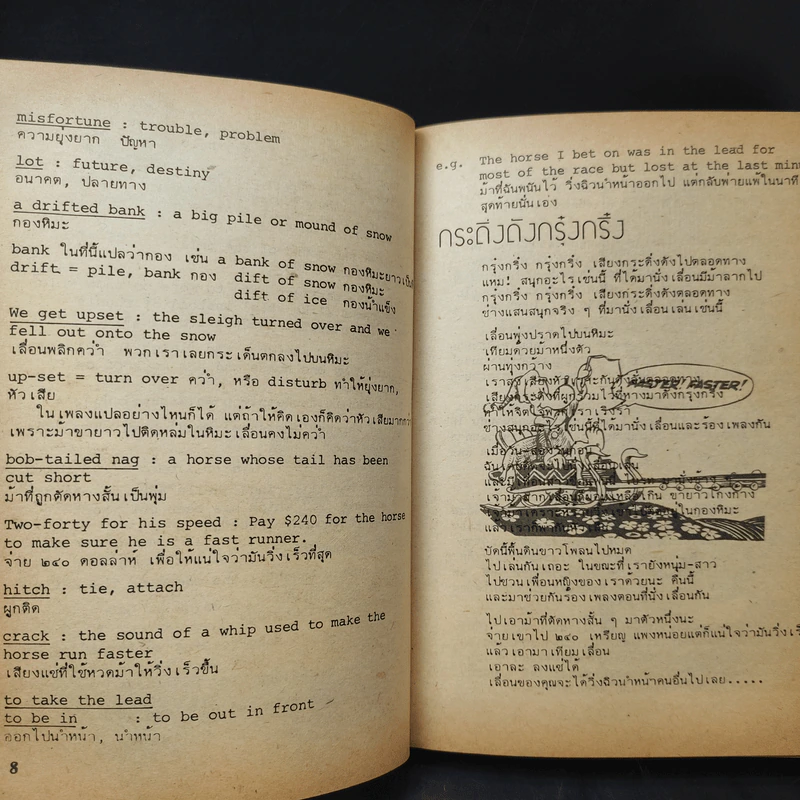 misfortune : trouble, problem
ความยุ่งยาก ปัญหา
lot : future, destiny
อนาคต, ปลายทาง
a drifted bank : a big pile or mound of snow
กองหิมะ
bank ในที่นี้แปลว่ากอง เช่น a bank of snow กองหิมะยาว
drift = pile, bank กอง dift of snow กองหิมะ
dift of ice กองน้ำแข็ง
We get upset : the sleigh turned over and we
fell out onto the snow
เลื่อนพลิกคว่ำ พวกเราเลยกระเด็นตกลงไปบนหิมะ
up-set = turn over คว่ำ, หรือ disturb ทำให้ยุ่งยาก,
หัวเสีย
ในเพลงแปลอย่างไหนก็ได้ แต่ถ้าให้คิดเองก็คิดว่าหัวเสียมากกว่า
เพราะม้าขายาวไปติดหล่มในหิมะเลื่อนคงไม่คว่ำ
bob-tailed nag : a horse whose tail has been
cut short
ม้าที่ถูกตัดหางสั้นเป็นพุ่ม
Two-forty for his speed : Pay $240 for the horse
to make sure he is a fast runner.
จ่าย ๒๔๐ ดอลล่าห์ เพื่อให้แน่ใจว่ามันวิ่งเร็วที่สุด
hitch : tie, attach
ผูกติด
crack : the sound of a whip used to make the
horse run faster
เสียงแซ่ที่ใช้หวดม้าให้วิ่งเร็วขึ้น
to take the lead
to be in : to be out in front
ออกไปนำหน้า, นำหน้า
8
e.g. The horse I bet on was in the lead for
most of the race but lost at the last
ม้าที่ฉันพนันไว้ วิ่งฉิวนำหน้าออกไป แต่กลับพ่ายแพ้ในนาที
สุดท้ายนั่นเอง
กระดิ่งดังกรุ๋งกริ๋ง
กรุ๋งกริ๋ง กรุ๋งกริ๋ง เสียงกระดิ่งดังไปตลอดทาง
แหม! สนุกอะไรเช่นนี้ ที่ได้มานั่งเลื่อนมีม้าลากไป
กรุ๋งกริ๋ง กรุ๋งกริ๋ง เสียงกระดิ่งดังตลอดทาง
ช่างแสนสนุกจริง ๆ ที่มานั่งเลื่อนเล่นเช่นนี้
เลื่อนพุ่งปราดไปบนหิมะ
เทียมด้วยม้าหนึ่งตัว
ผ่านทุ่งกว้าง
FASTER! FASTER!
ช่างสนุกอะไรเช่นนี้ที่ได้มานั่งเลื่อนและร้องเพลงกัน
บัดนี้พื้นดินขาวโพลนไปหมด
ไปเล่นกันเถอะ ในขณะที่เรายังหนุ่ม-สาว
ไปชวนเพื่อนหญิงของเราด้วยนะ คืนนี้
และมาช่วยกันร้องเพลงตอนที่นั่งเลื่อนกัน
ไปเอาม้าที่ตัดหางสั้น ๆ มาตัวหนึ่งนะ
จ่ายเขาไป ๒๔๐ เหรียญ แพงหน่อยแต่ก็แน่ใจว่ามันวิ่ง
แล้วเอามาเทียมเลื่อน
เอาละ ลงแซ่ได้
เลื่อนของคุณจะได้วิ่งฉิวนำหน้าคนอื่นไปเลย.....